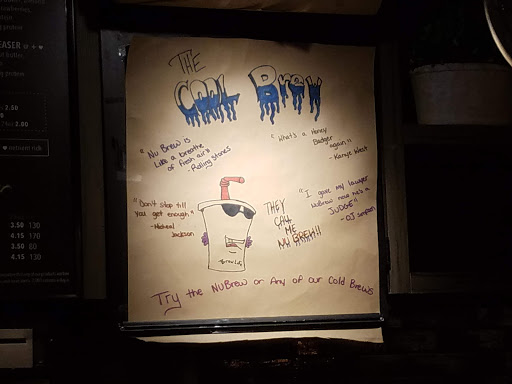 THE
COOL BREW
"Nu Brew is
Like a breathe
of fresh air"
- Rolling Stones
"What's a Honey
Badger
again"
- Kanye West
"Don't stop till
you get enough"
- Micheal
Jackson
THEY
CALL
ME
NU BREW!!
"I gave my lawyer
NuBrew now he's a
JUDGE"
- OJ Simpson
Try the NuBrew or Any of our Cold Brews
EASER
2.50
3.00
3.50 130
4.15 170
3.50 60
4.15 130